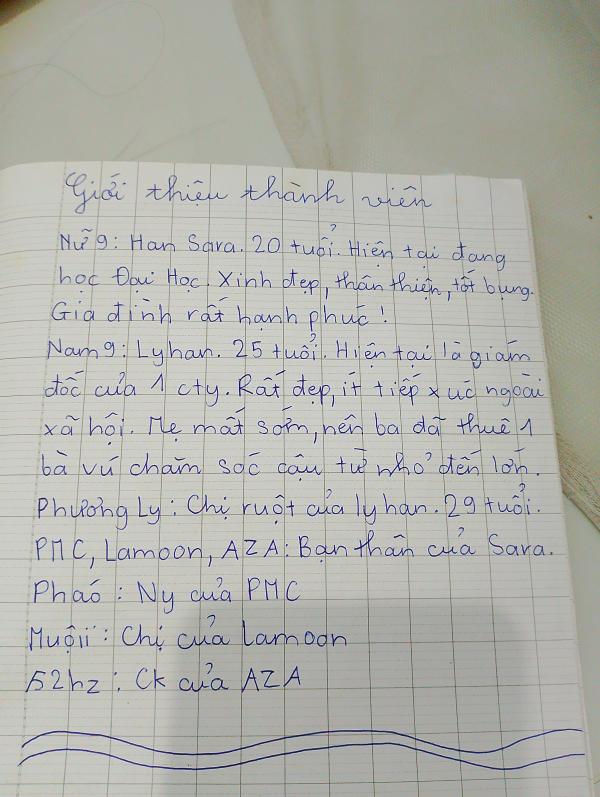 Giới thiệu thành viên
Nữ 9: Han Sara. 20 tuổi. Hiện tại đang
học Đại Học. Xinh đẹp, thân thiện, tốt bụng.
Gia đình rất hạnh phúc!
Nam 9: Lyhan. 25 tuổi. Hiện tại là giám
đốc của 1 cty. Rất đẹp, ít tiếp xúc ngoài
xã hội. Mẹ mất sớm, nên ba đã thuê 1
bà vú chăm sóc cậu từ nhỏ đến lớn.
Phương Ly: Chị ruột của lyhan. 29 tuổi.
PMC, Lamoon, AZA: Bạn thân của Sara.
Pháo: Ny của PMC
Muộii: Chị của Lamoon
52hz: Ck của AZA